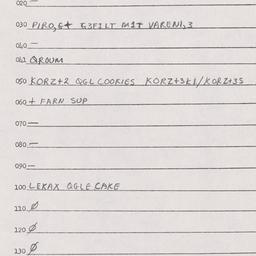 020 —
030 PIRO, G+ G3FILT MIT VARENI, 3
040 —
041 QROUM
050 KORZ+2 QGL COOKIES KORZ+3KI//KORZ+35
060 + FARN SUP
070 —
080 —
090 —
100 LEKAX QGLE CAKE
110 Ø
120 Ø
130 Ø